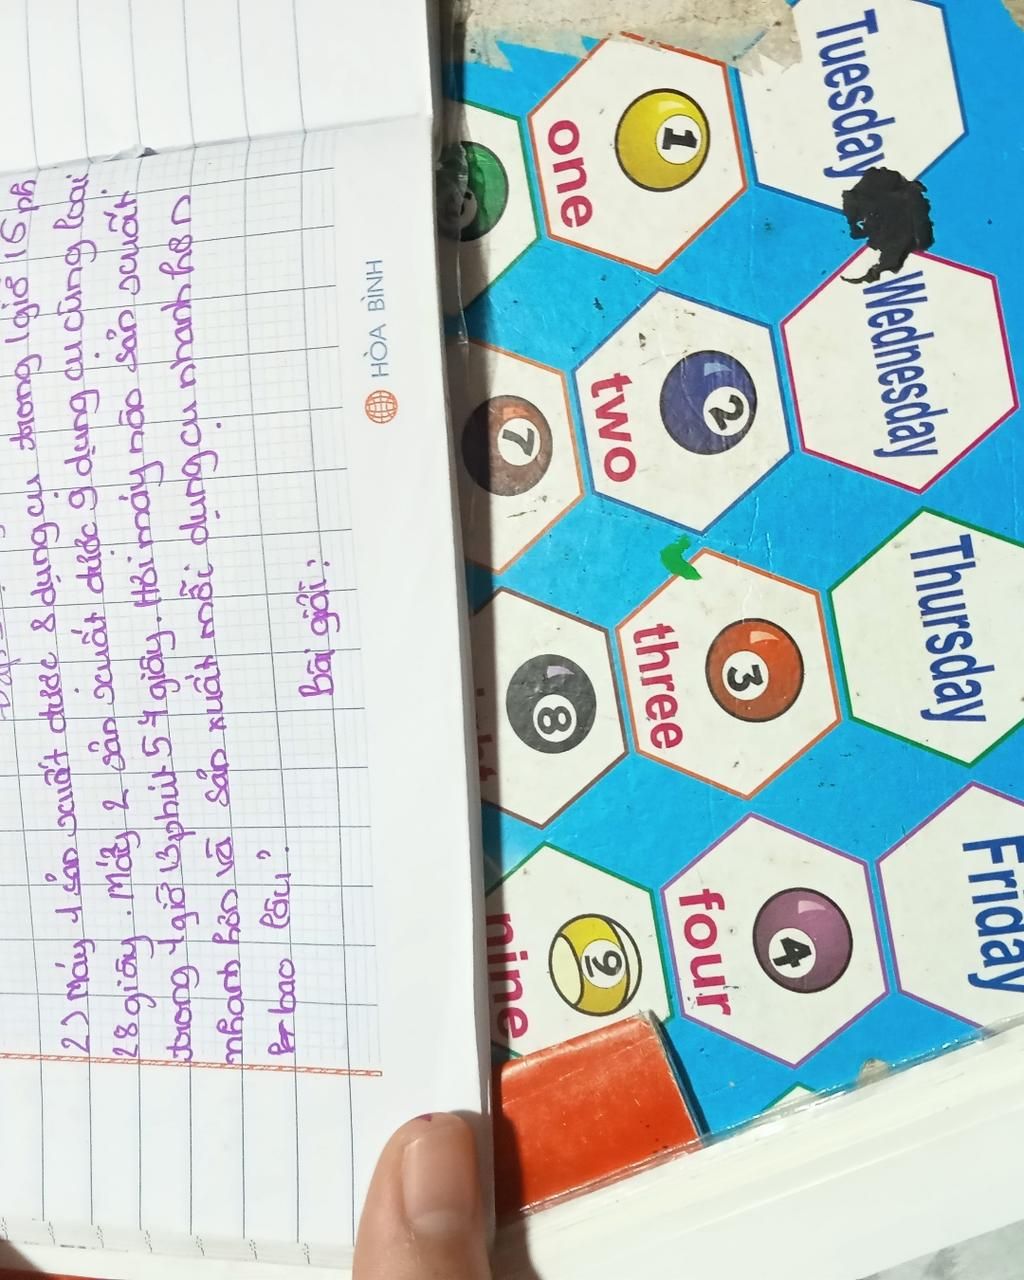 2) Máy 1 sản xuất được 8 dụng cụ trong 1 giờ 16 ph
28 giây. Máy 2 sản xuất được 9 dụng cụ cùng loại
trong 1 giờ 13 phút 57 giây. Hỏi máy nào sản xuất
nhanh hơn và sản xuất mỗi dụng cụ nhanh hơn
bao lâu?
Bài giải:
HÒA BÌNH
Tuesday
Wednesday
Thursday
Friday
1
one
2
two
3
three
4
four
7
8
9
nine